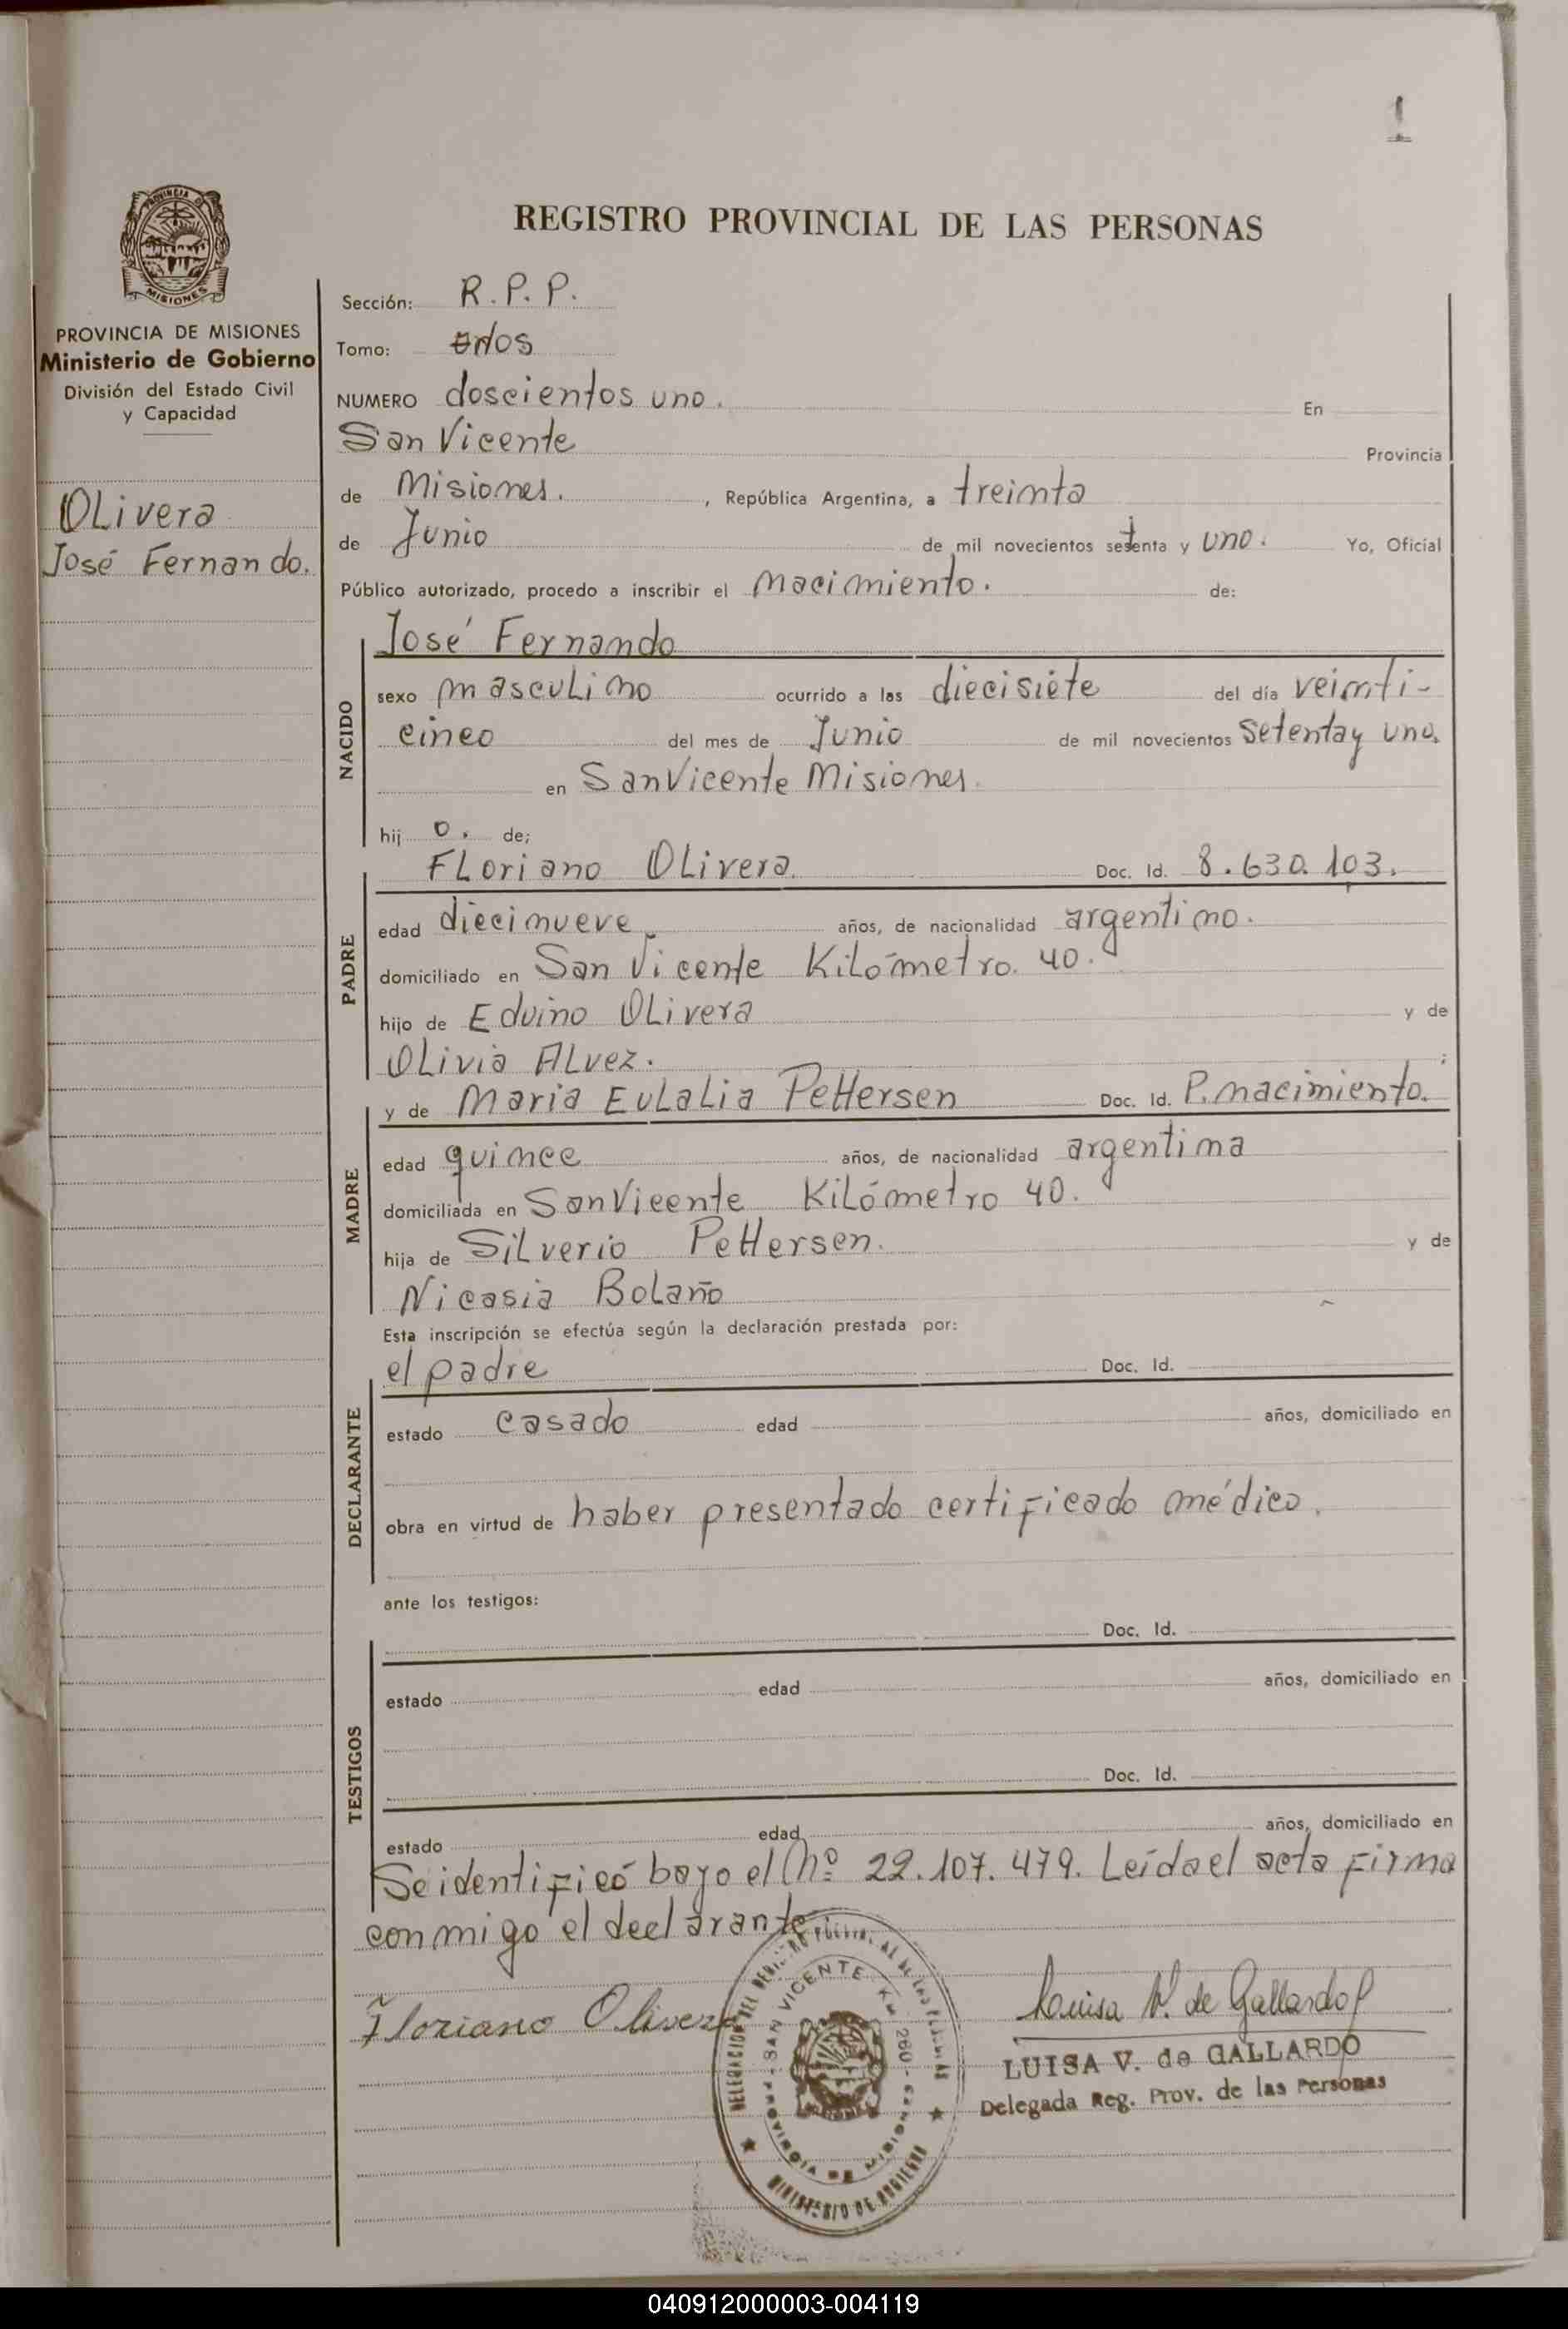 1
PROVINCIA DE
MISIONES
PROVINCIA DE MISIONES
Ministerio de Gobierno
División del Estado Civil
y Capacidad
OLivera
José Fernando.
REGISTRO PROVINCIAL DE LAS PERSONAS
Sección: R.P.P.
Tomo: dos
NUMERO doscientos uno. En
San Vicente Provincia
de Misiones. , República Argentina, a treinta
de Junio de mil novecientos setenta y uno. Yo, Oficial
Público autorizado, procedo a inscribir el nacimiento. de:
José Fernando
NACIDO
sexo masculino ocurrido a las diecisiete del día veinti-
cinco del mes de Junio de mil novecientos setenta y uno.
en San Vicente Misiones.
hij o. de;
FLoriano OLivera. Doc. Id. 8.630.103.
PADRE
edad diecinueve años, de nacionalidad argentino.
domiciliado en San Vicente Kilómetro 40.
hijo de Eduino OLivera y de
OLivia Alvez. ;
y de Maria EuLaLia Pettersen Doc. Id. P. nacimiento.
MADRE
edad quince años, de nacionalidad argentina
domiciliada en San Vicente Kilómetro 40.
hija de SiLverio Pettersen. y de
Nicasia BoLaño
Esta inscripción se efectúa según la declaración prestada por:
el padre Doc. Id.
DECLARANTE
estado casado edad años, domiciliado en
obra en virtud de haber presentado certificado médico.
ante los testigos:
Doc. Id.
TESTIGOS
estado edad años, domiciliado en
Doc. Id.
estado edad años, domiciliado en
Se identificó bajo el Nº 22.107.479. Leída el acta firma
conmigo el declarante
Floriano Olivera
SAN VICENTE Km 260
PROVINCIA DE MISIONES
MINISTERIO DE GOBIERNO
Luisa V. de Gallardo
LUISA V. de GALLARDO
Delegada Reg. Prov. de las Personas
040912000003-004119